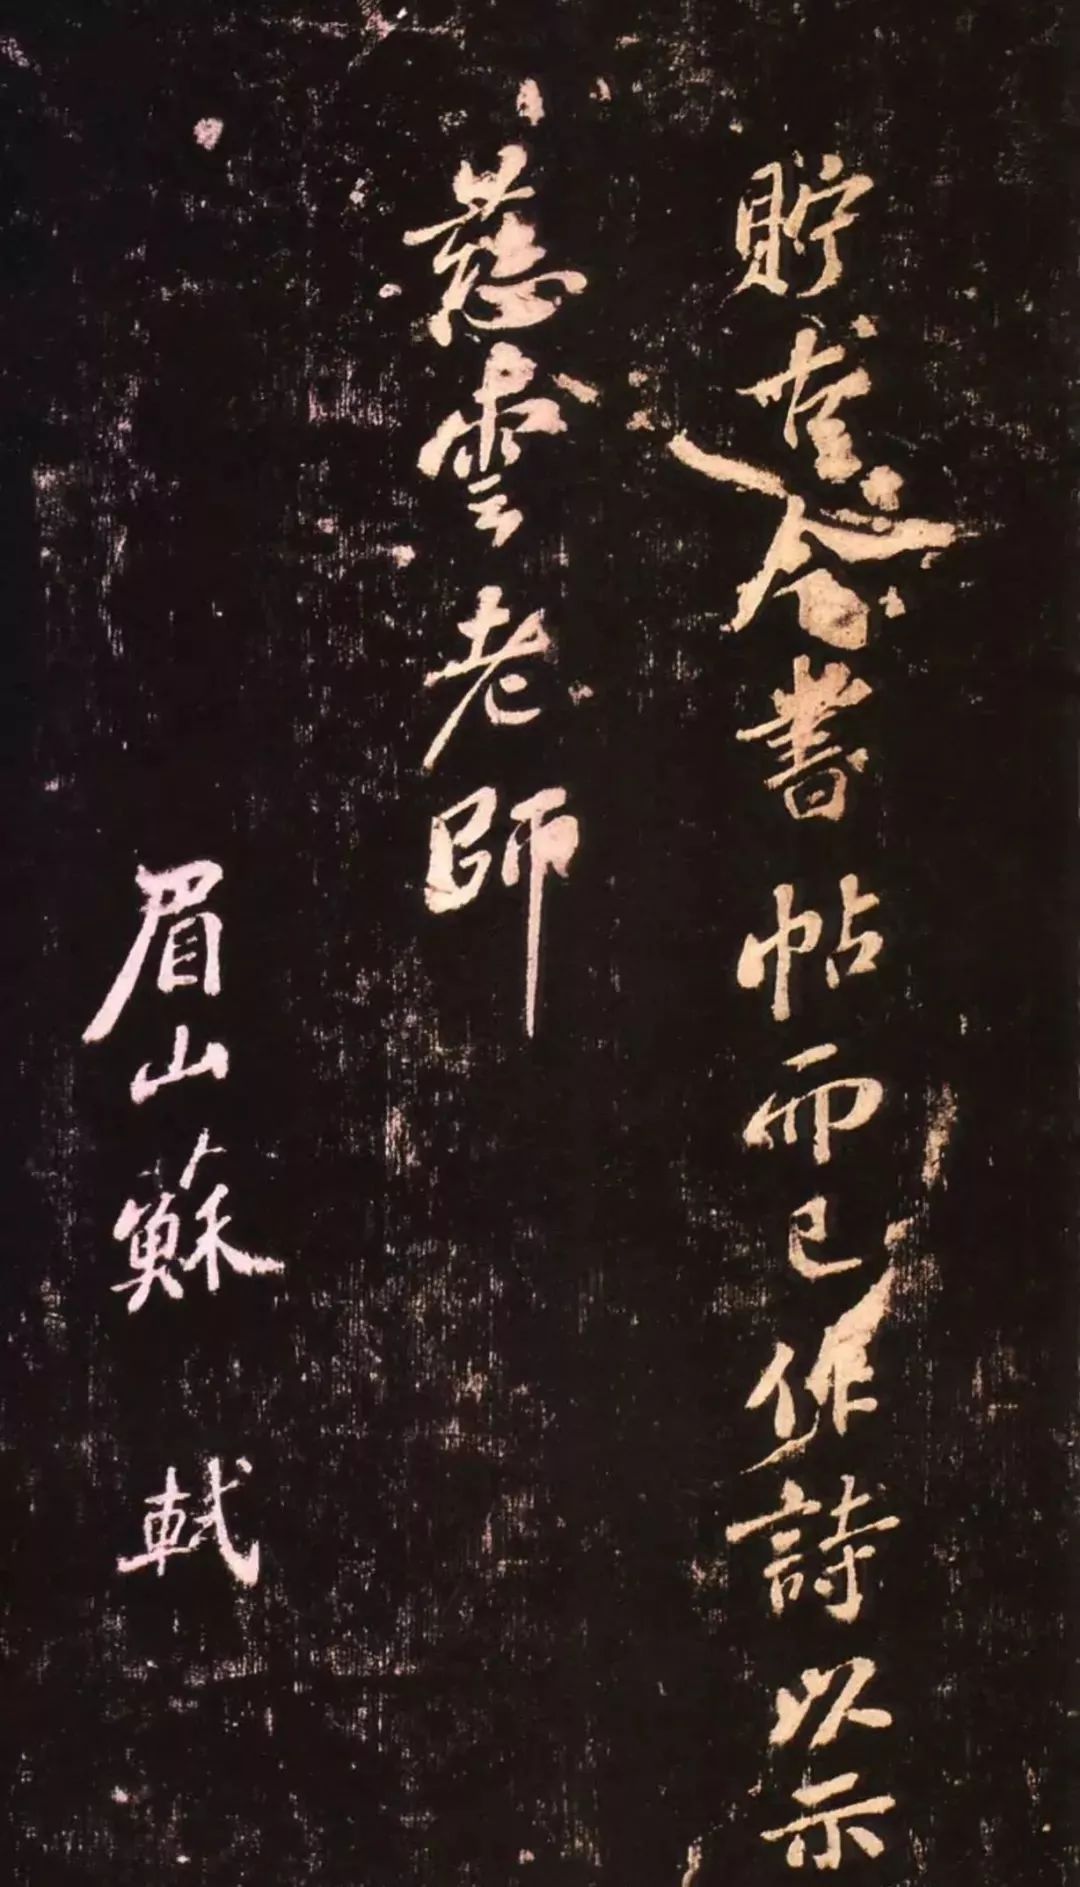 貯書帖而已作詩以示
慈雲老師
眉山蘇軾